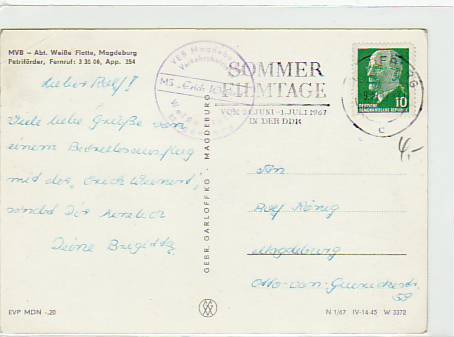 MVB – Abt. Weiße Flotte, Magdeburg
Petriförder, Fernruf: 3 20 06, App. 254
VEB Magdeburg
Verkehrsbetr
MS „Erich W
SOMMER
FILMTAGE
VOM JUNI-1.JULI 1967
IN DER DDR
DEUTSCHE
DEMOKRATISCHE REPUBLIK
10
c
4,-
Lieber Rolf!
Viele liebe Grüße von
einem Betriebsausflug
mit der „Erich Weinert"
sendet Dir herzlich
Deine Brigitte
GEBR. GARLOFF KG · MAGDEBURG
An
Rolf König
Magdeburg
Otto-von-Guerickestr
58
EVP MDN -.20
N 1/67 IV-14-45 W 3372